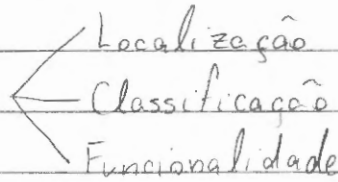 Localização
Classificação
Funcionalidade